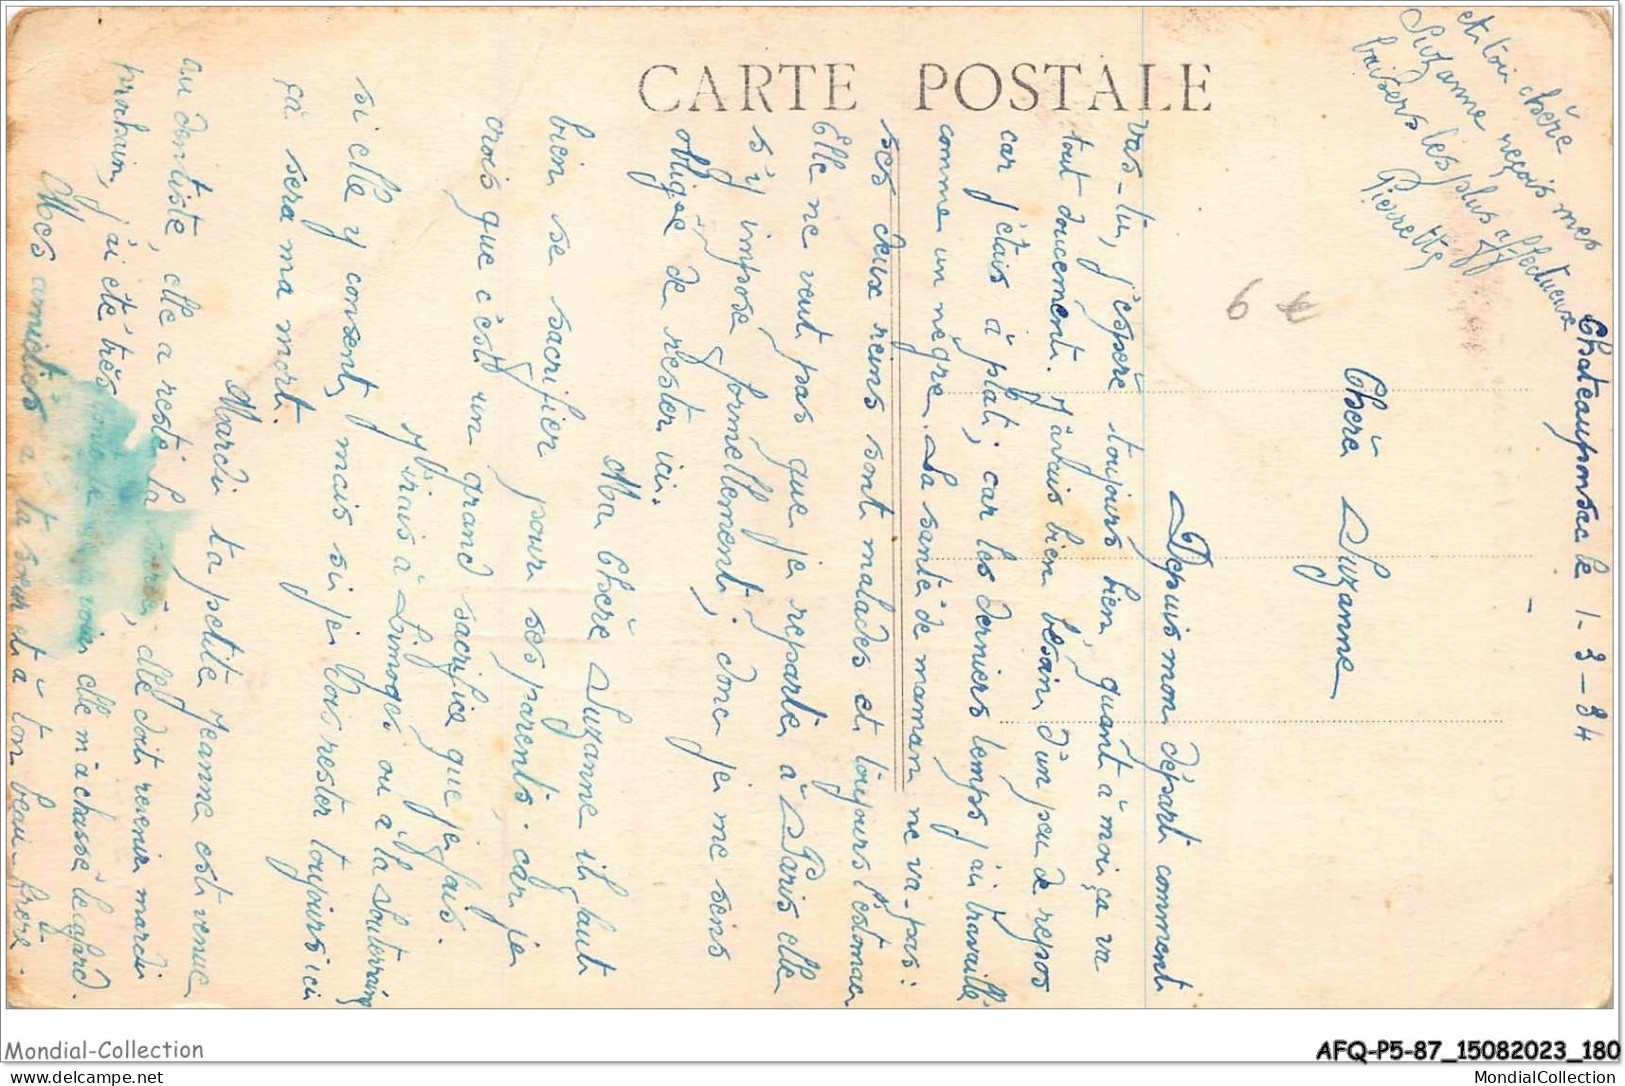 CARTE POSTALE
Chateauponsac le 1-3-34
Chère Suzanne
Depuis mon départ comment
vas-tu, j'espère toujours bien, quant à moi ça va
tout doucement. J'avais bien besoin d'un peu de repos
car j'étais à plat; car les derniers temps j'ai travaillé
comme un nègre. La santé de maman ne va pas:
ses deux reins sont malades et toujours l'estomac
Elle ne veut pas que je reparte à Paris elle
s'y impose formellement; donc je me sens
obligée de rester ici.
Ma Chère Suzanne il faut
bien se sacrifier pour ses parents. car je
crois que c'est un grand sacrifice que je fais.
J'irais à Limoges ou à la Souterraine
si elle y consent, mais si je dois rester toujours ici
çà sera ma mort.
Mardi ta petite Jeanne est venue
au dentiste, elle a resté la soirée, elle doit revenir mardi
prochain, j'ai été très voir elle m'a chassé le cafard.
Mes amitiés a ta sœur et à ton beau-frère.
et toi chère
Suzanne reçois mes
baisers les plus affectueux
Pierrette
6 €
Mondial-Collection
AFQ-P5-87_15082023_180
delcampe.net
MondialCollection